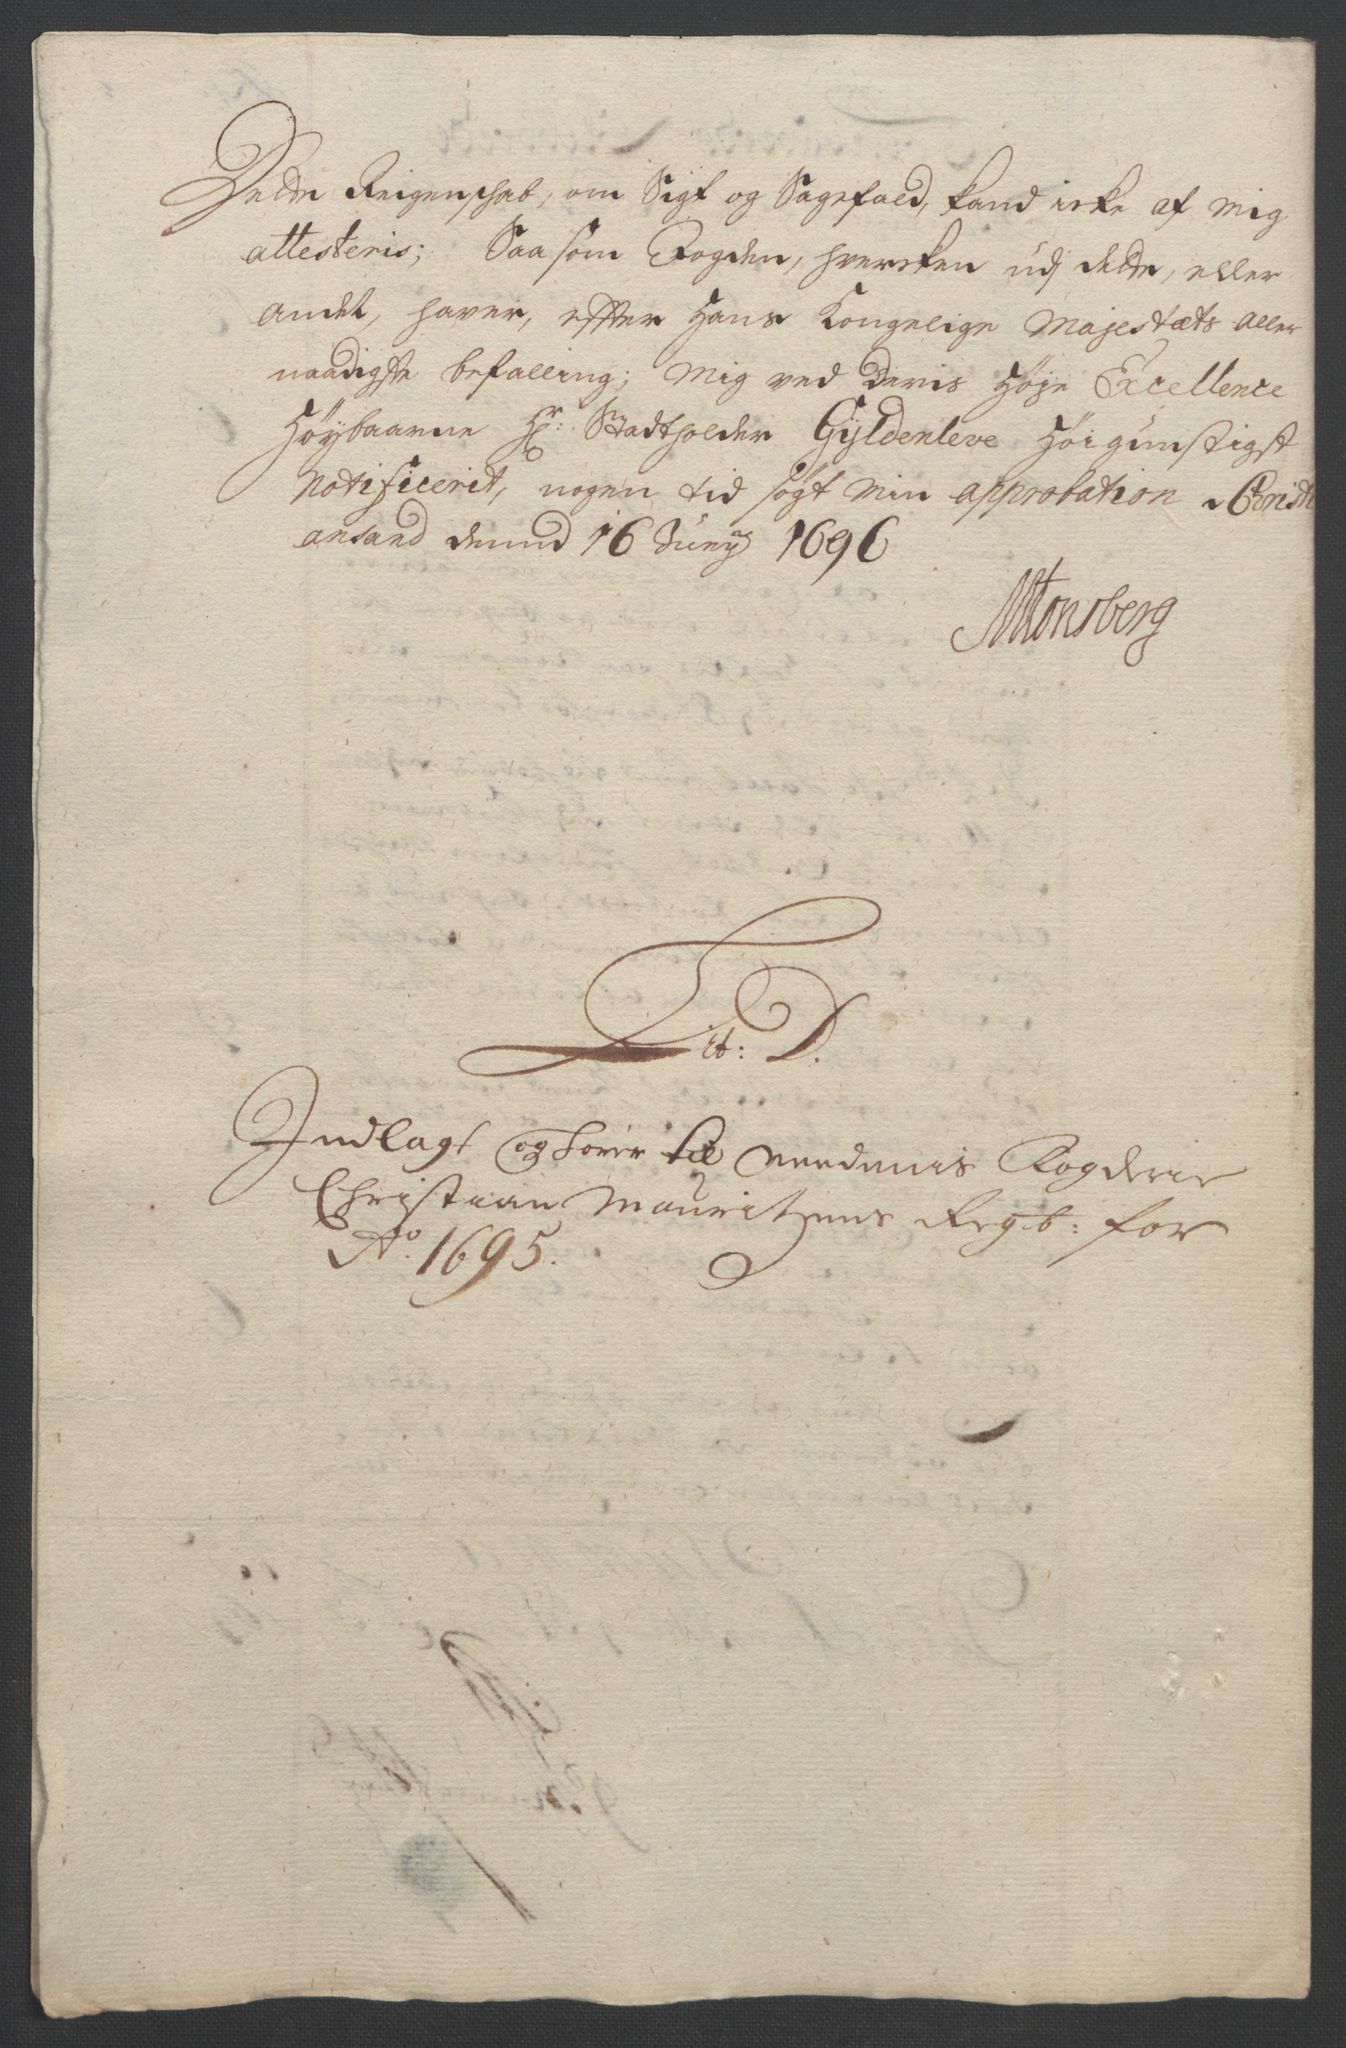 Dette Reigenschab, om Sigt og Sagefald, kand icke af mig
attesteris; Saa som Fogden, hvercken udj dette, eller
andet, haver, effter Hans Kongelige Majestæts aller
naadigste befalling; Mig ved deris Høje Excellence
Høybaarne Hr: Stadtholder Gyldenleve Høigunstigst
Notificerit, nogen tid søgt Min approbation Christi
ansand dennd 16 Junij 1696
MTonsberg
Lit: D.
Indlagt og hører til Nerdenes Fogderie
Christian Mauritzens Regb: for
Ao. 1695.